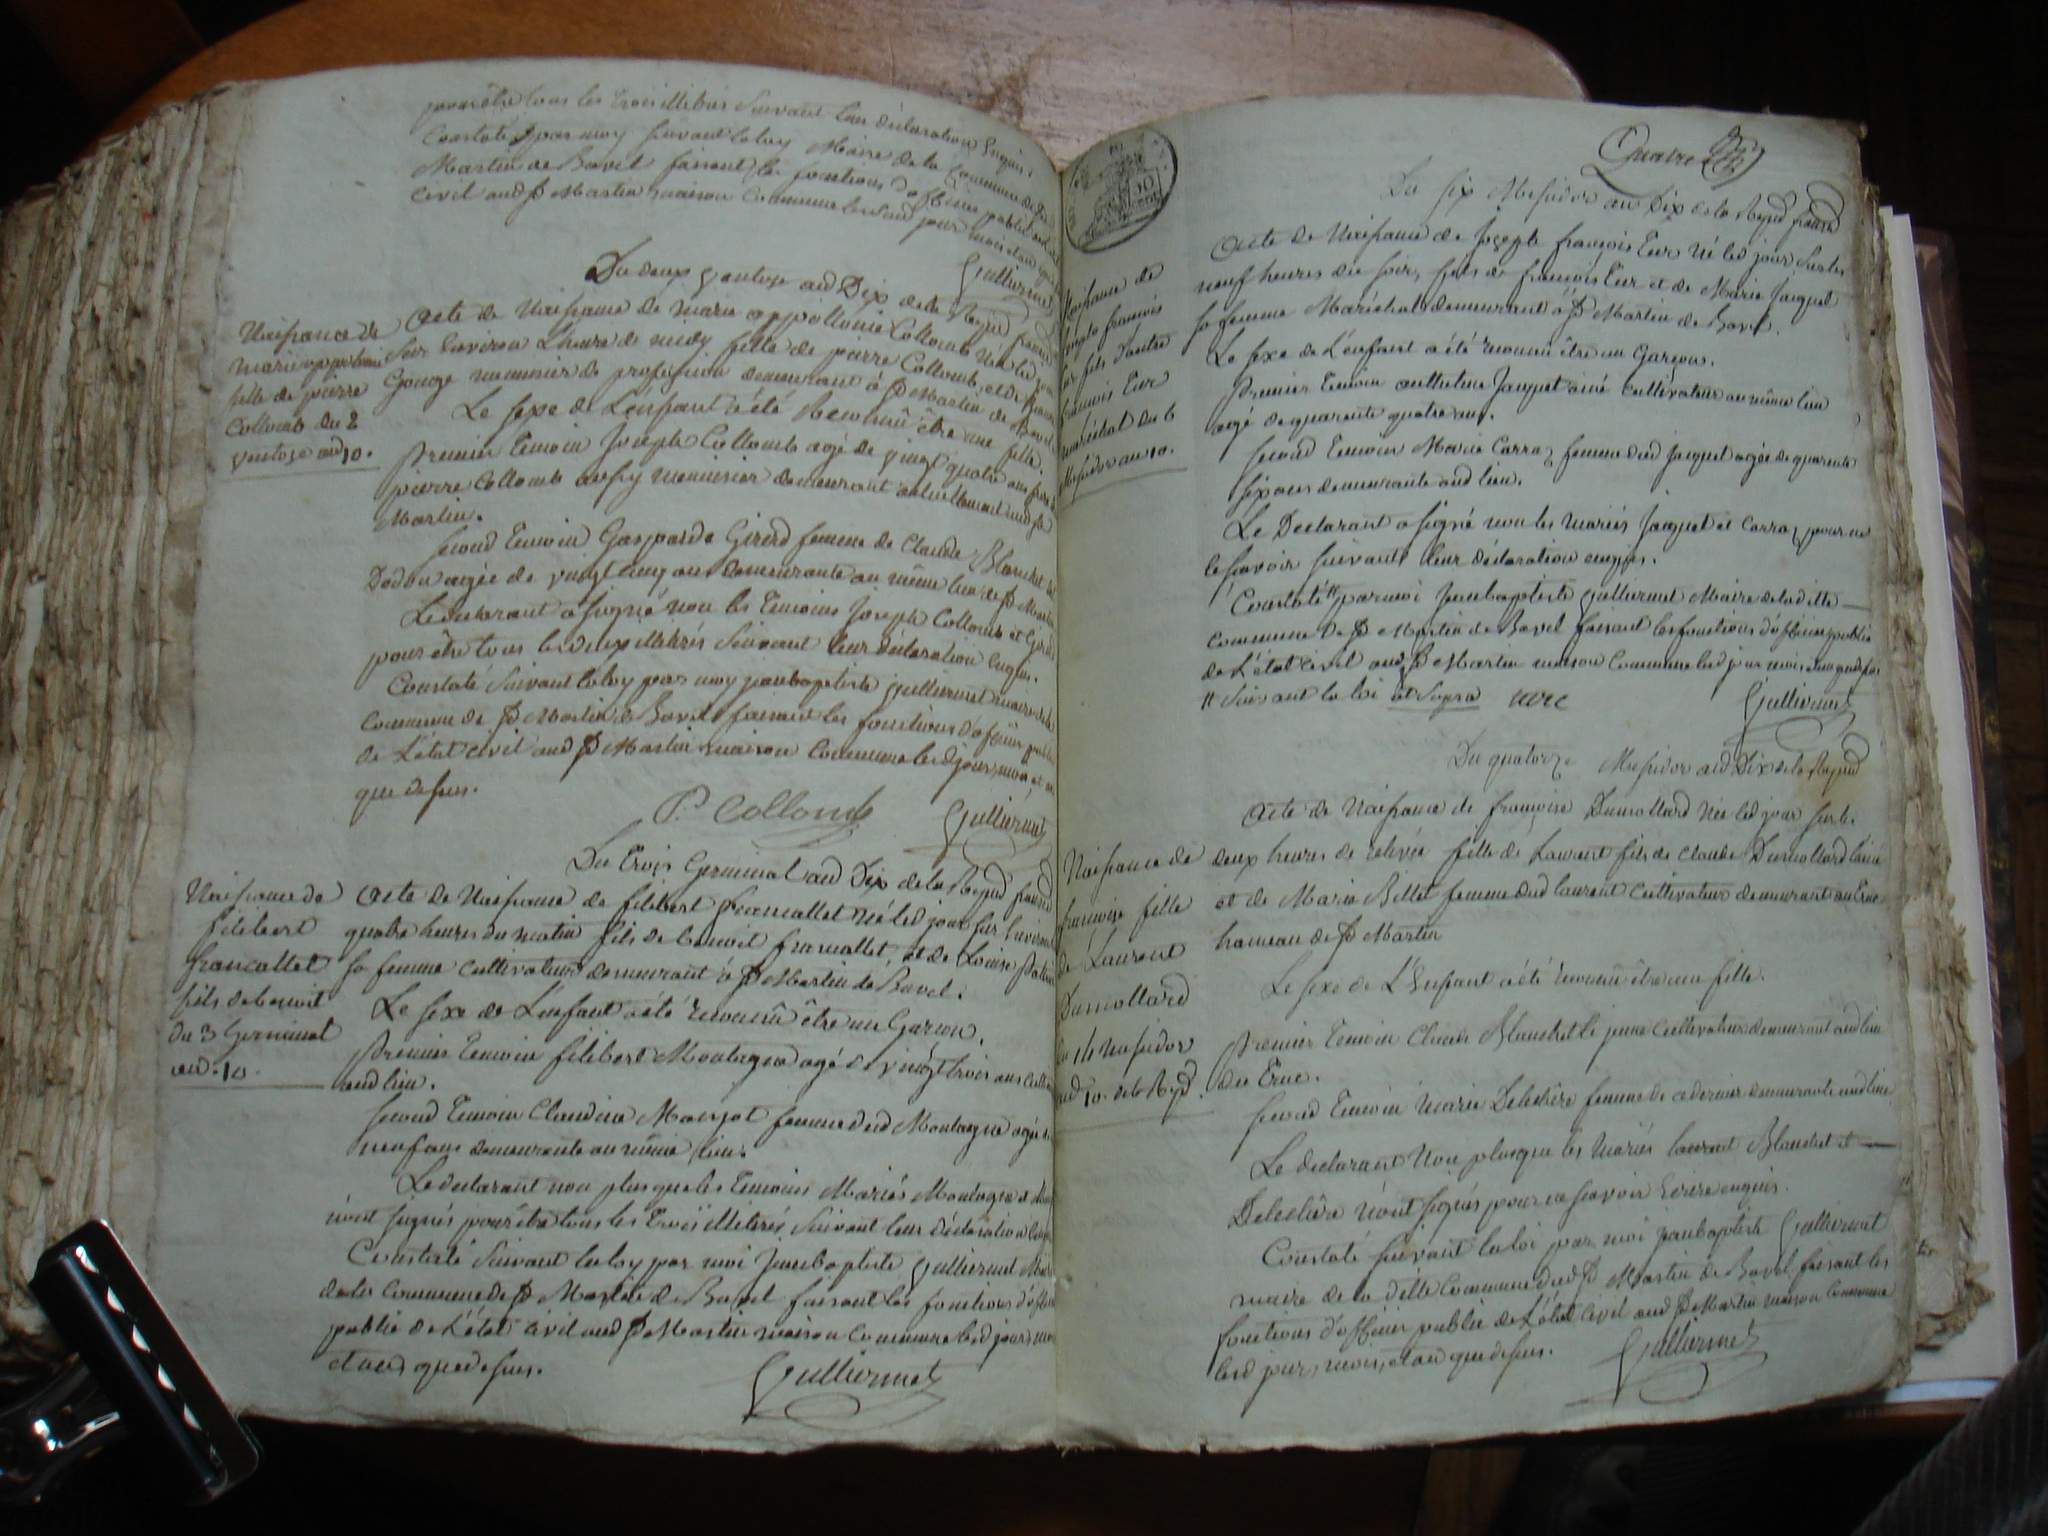 pour être tous les trois illitérés suivant leur déclaration enquis.
Constaté par moy suivant la loy Maire de la Commune de St
Martin de Bavel faisant les fonctions d'officier public
civil aud St Martin maison commune lesd jour mois et an
Gulliermet
Du deux ventose an Dix de la Repud
Naissance de
marie appolonie
fille de pierre
Collomb du 2
ventose an 10.
Acte de Naissance de marie appollonie Collomb Née led jour
sur Environ L'heure de midy fille de pierre Collomb, et de
Gouoze meunnier de profession demeurant à St Martin de Bavel
Le sexe de L'enfant a été Reconnû être une fille.
Premier Temoin Joseph Collomb agé de vingt quatre ans
pierre Collomb aussy meunnier demeurant actuellement aud St
Martin.
Second Temoin Gasparde Girerd femme de Claude Blanchet
Dodon agée de vingt cinq ans demeurante au même lieu de St Martin
Le declarant a signé non les Temoins Joseph Collomb et
pour être tous les deux illitérés suivant leur déclaration enquis.
Constaté suivant la loy par moy jeanbaptiste gulliermet maire de la
commune de St Martin de Bavel faisant les fonctions d'officier public
de L'état civil aud St Martin maison commune lesd jour, mois et an
que dessus.
P. Collomb Gulliermet
Du Trois Germinal an Dix de la Repud
Naissance de
filibert
francallet
fils de benoit
du 3 Germinal
an 10.
Acte de Naissance de filibert francallet Né led jour sur Environ
quatre heures du matin fils de benoit francallet, et de Louise
sa femme cultivateurs demeurant à St Martin de Bavel.
Le sexe de L'enfant a été reconnû être un Garçon.
Premier Temoin filibert Montagne agé de vingt trois ans
aud lieu.
Second Temoin Claudine femme dud Montagne agée de
neuf ans demeurante au même lieu.
Le declarant non plus que les Temoins Mariés Montagne et
n'ont signés pour être tous les trois illitérés suivant leur déclaration
Constaté suivant la loy par moi jeanbaptiste gulliermet Maire
de la Commune de St Martin de Bavel faisant les fonctions d'officier
public de L'état civil aud St Martin maison commune lesd jour, mois
et an que dessus.
Gulliermet
Quatre
Du six Messidor an Dix de la Repud
Naissance de
joseph francois
fils d'autre
francois Tur
maréchal du 6
Messidor an 10.
Acte de Naissance de Joseph françois Tur Né led jour sur les
neuf heures du soir, fils de françois Tur et de Marie Jacquet
sa femme Maréchal demeurant à St Martin de Bavel.
Le sexe de L'enfant a été reconnu être un Garçon.
Premier Temoin Jacquet ainé cultivateur au même lieu
agé de quarante quatre ans.
Second Temoin Marie Carraz femme dud Jacquet agée de quarante
six ans demeurante aud lieu.
Le Declarant a signé non les Mariés Jacquet et Carraz pour ne
le savoir suivant leur déclaration enquis.
Constaté # par moi jeanbaptiste gulliermet Maire de la ditte
commune de St Martin de Bavel faisant les fonctions d'officier public
de L'état civil aud St Martin maison commune lesd jour mois et an que dessus
# suivant la loi Gulliermet
Du quatorze Messidor an Dix de la Repud
Naissance de
françoise fille
de Laurent
Dumollard
du 14 Messidor
an 10. de la Repd.
Acte de Naissance de françoise Dumollard Née led jour sur les
deux heures de relevée fille de Laurent fils de Claude Dumollard lainé
et de Marie Billet femme dud laurent cultivateur demeurant au
hameau de St Martin
Le sexe de L'Enfant a été reconnu être une fille.
Premier Temoin Blanchet le jeune cultivateur demeurant aud lieu
du
Second Temoin Marie femme de ce dernier demeurante aud lieu
Le declarant Non plus que les mariés laurent Blanchet et
n'ont signés pour ne savoir Ecrire enquis.
Constaté suivant la loi par moi jeanbaptiste gulliermet
maire de la ditte Commune dud St Martin de Bavel faisant les
fonctions d'officier public de L'état civil aud St Martin maison Commune
lesd jour, mois, et an que dessus.
Gulliermet